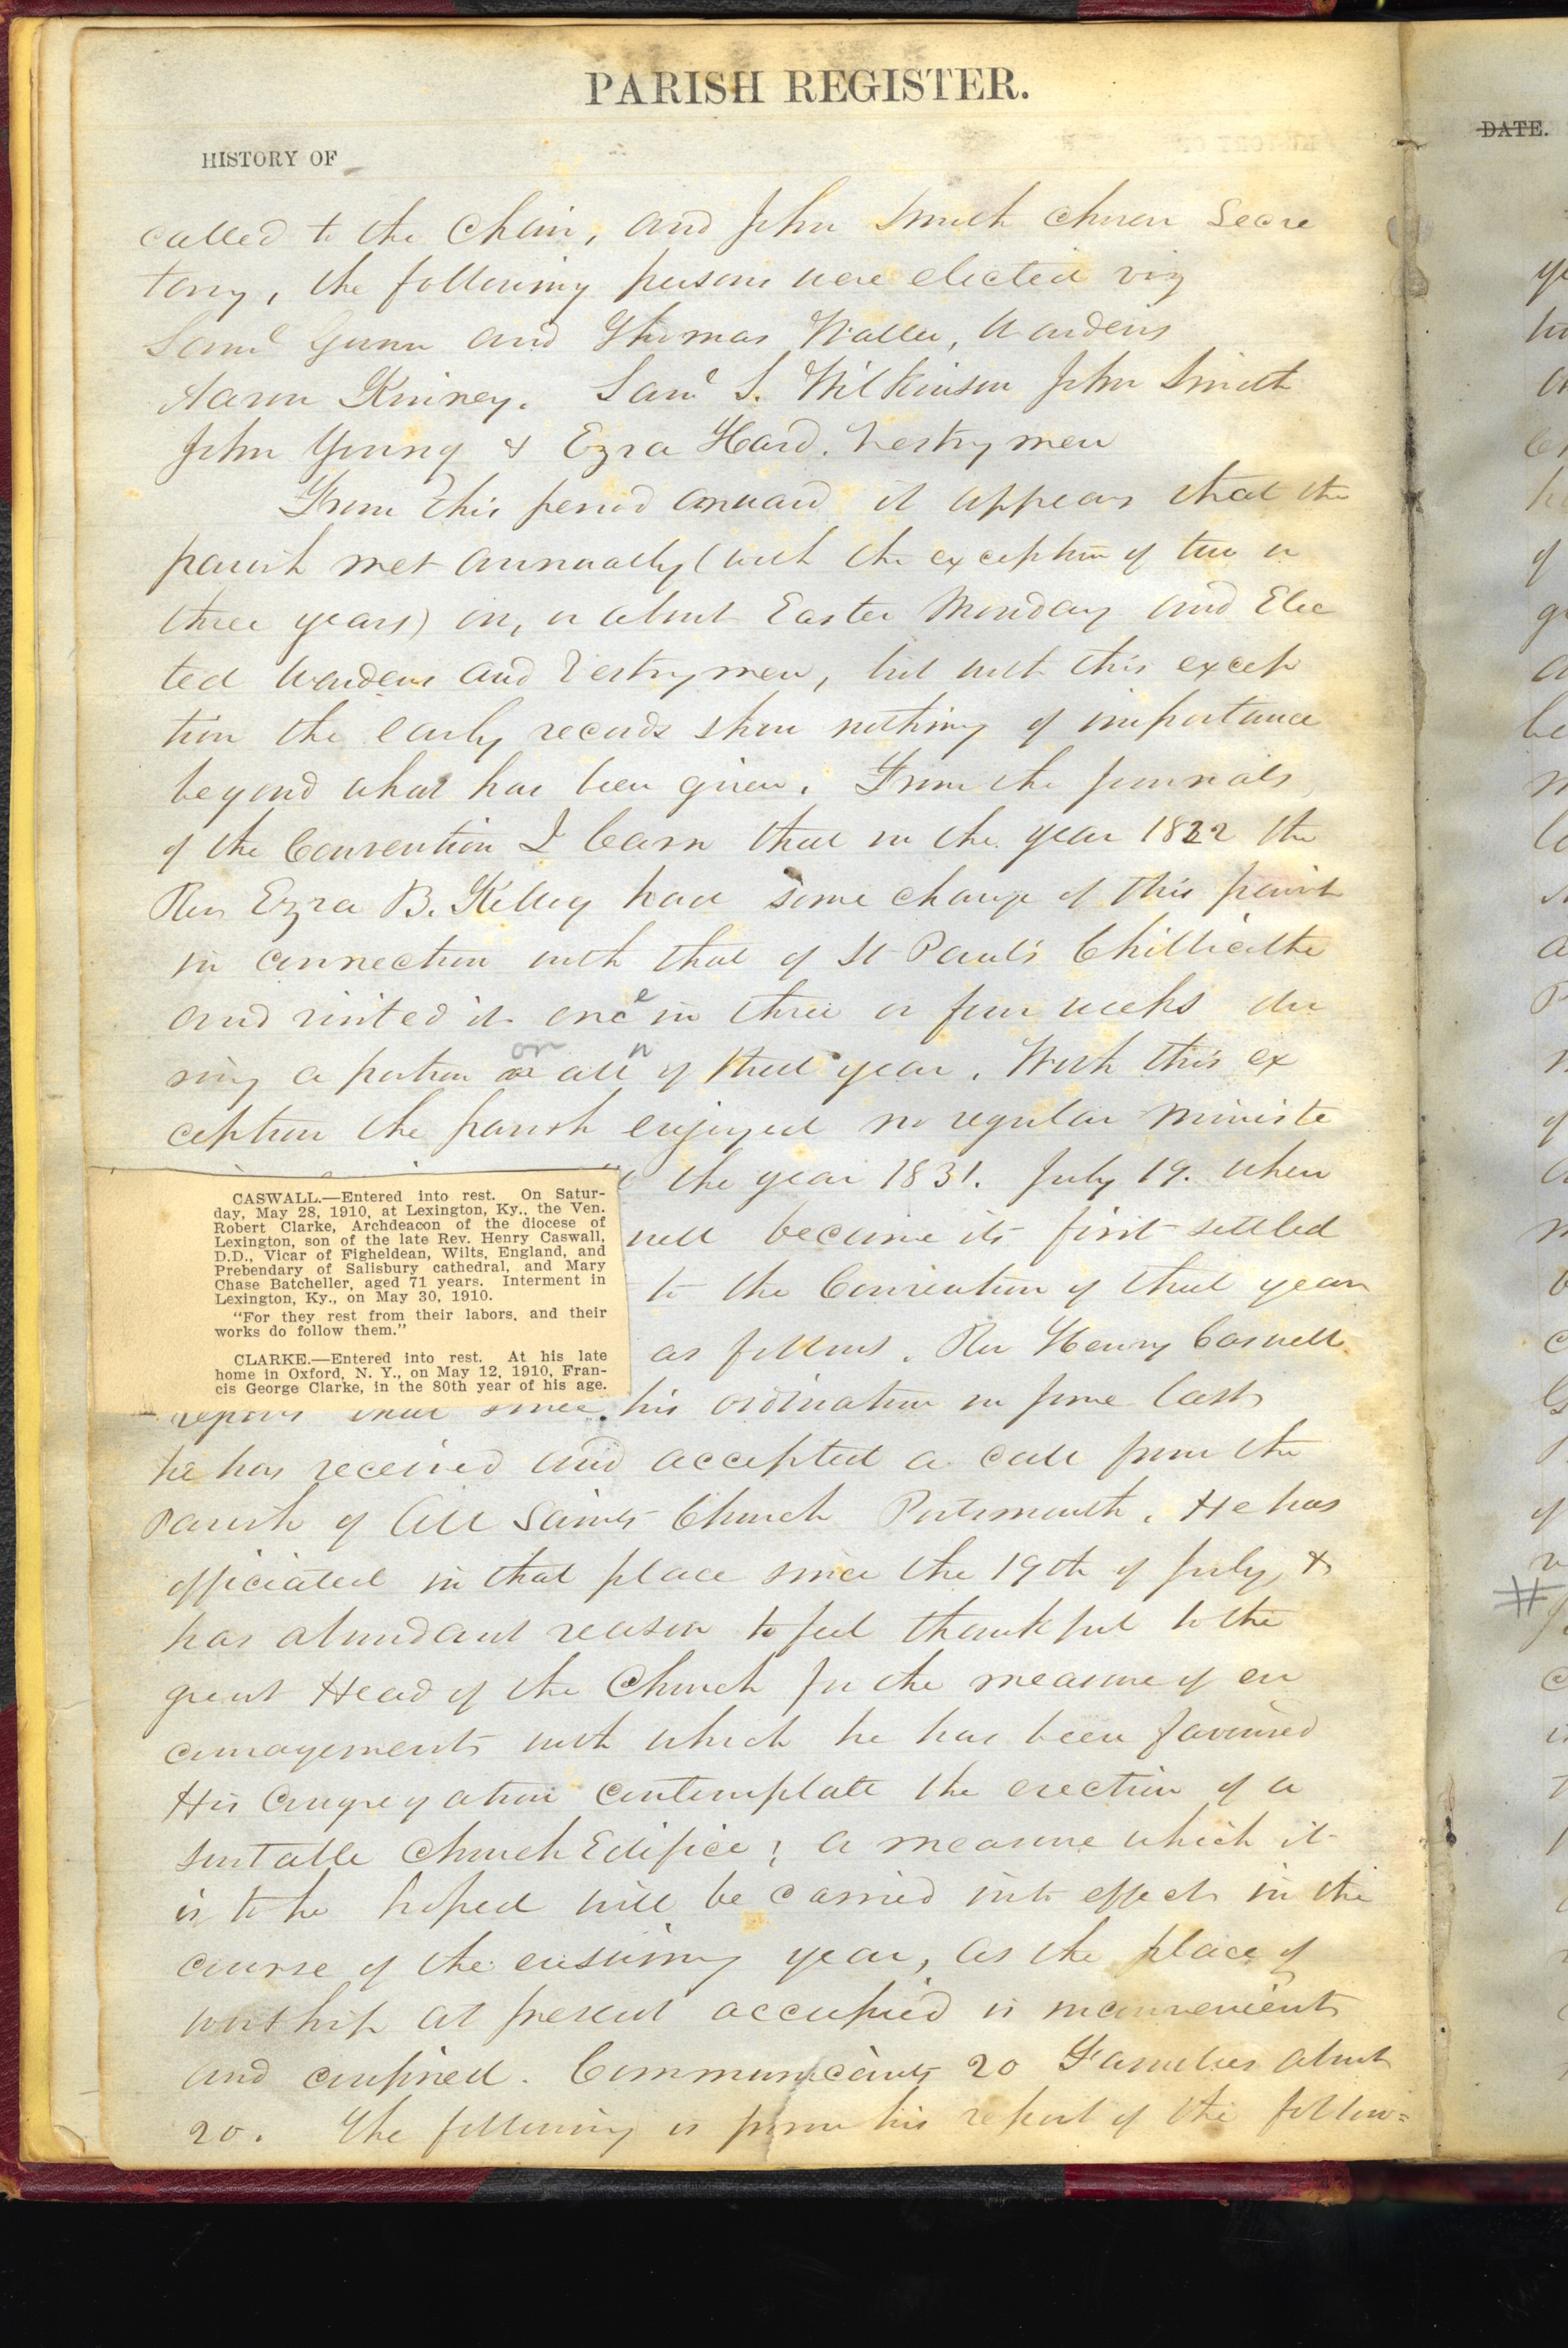 PARISH REGISTER.
HISTORY OF
called to the Chair, and John Smith chosen Secre
tary, the following persons were elected viz
Saml Gunn and Thomas Waller, Wardens
Aaron Kinney. Saml S. Wilkinson John Smith
John Young & Ezra Hard. Vestrymen
From this period onward it appears that the
parish met annually (with the exception of two or
three years) on, or about Easter Monday and Elec
ted Wardens and Vestrymen, but with this excep
tion the early records show nothing of importance
beyond what has been given. From the journals
of the Convention I learn that in the year 1822 the
Rev Ezra B. Kelley had some charge of this parish
in connection with that of St Paul's Chillicothe
and visited it once in three or four weeks du
ring a portion or all of that year. With this ex
ception the parish enjoyed no regular ministe
the year 1831. July 19. when
wall became its first settled
to the Convention of that year
as follows. Rev Henry Caswall
reports that since his ordination in June last
he has received and accepted a call from the
Parish of All Saints Church Portsmouth. He has
officiated in that place since the 19th of July, &
has abundant reason to feel thankful to the
great Head of the Church for the measure of en
couragements with which he has been favoured
His Congregation contemplate the erection of a
suitable Church Edifice; a measure which it
is to be hoped will be carried into effect in the
course of the ensuing year, as the place of
worship at present occupied is inconvenient
and confined. Communicants 20 Families about
20. The following is from his report of the follow=
CASWALL.—Entered into rest. On Satur-
day, May 28, 1910, at Lexington, Ky., the Ven.
Robert Clarke, Archdeacon of the diocese of
Lexington, son of the late Rev. Henry Caswall,
D.D., Vicar of Figheldean, Wilts, England, and
Prebendary of Salisbury cathedral, and Mary
Chase Batcheller, aged 71 years. Interment in
Lexington, Ky., on May 30, 1910.
"For they rest from their labors, and their
works do follow them."
CLARKE.—Entered into rest. At his late
home in Oxford, N. Y., on May 12, 1910, Fran-
cis George Clarke, in the 80th year of his age.
DATE.